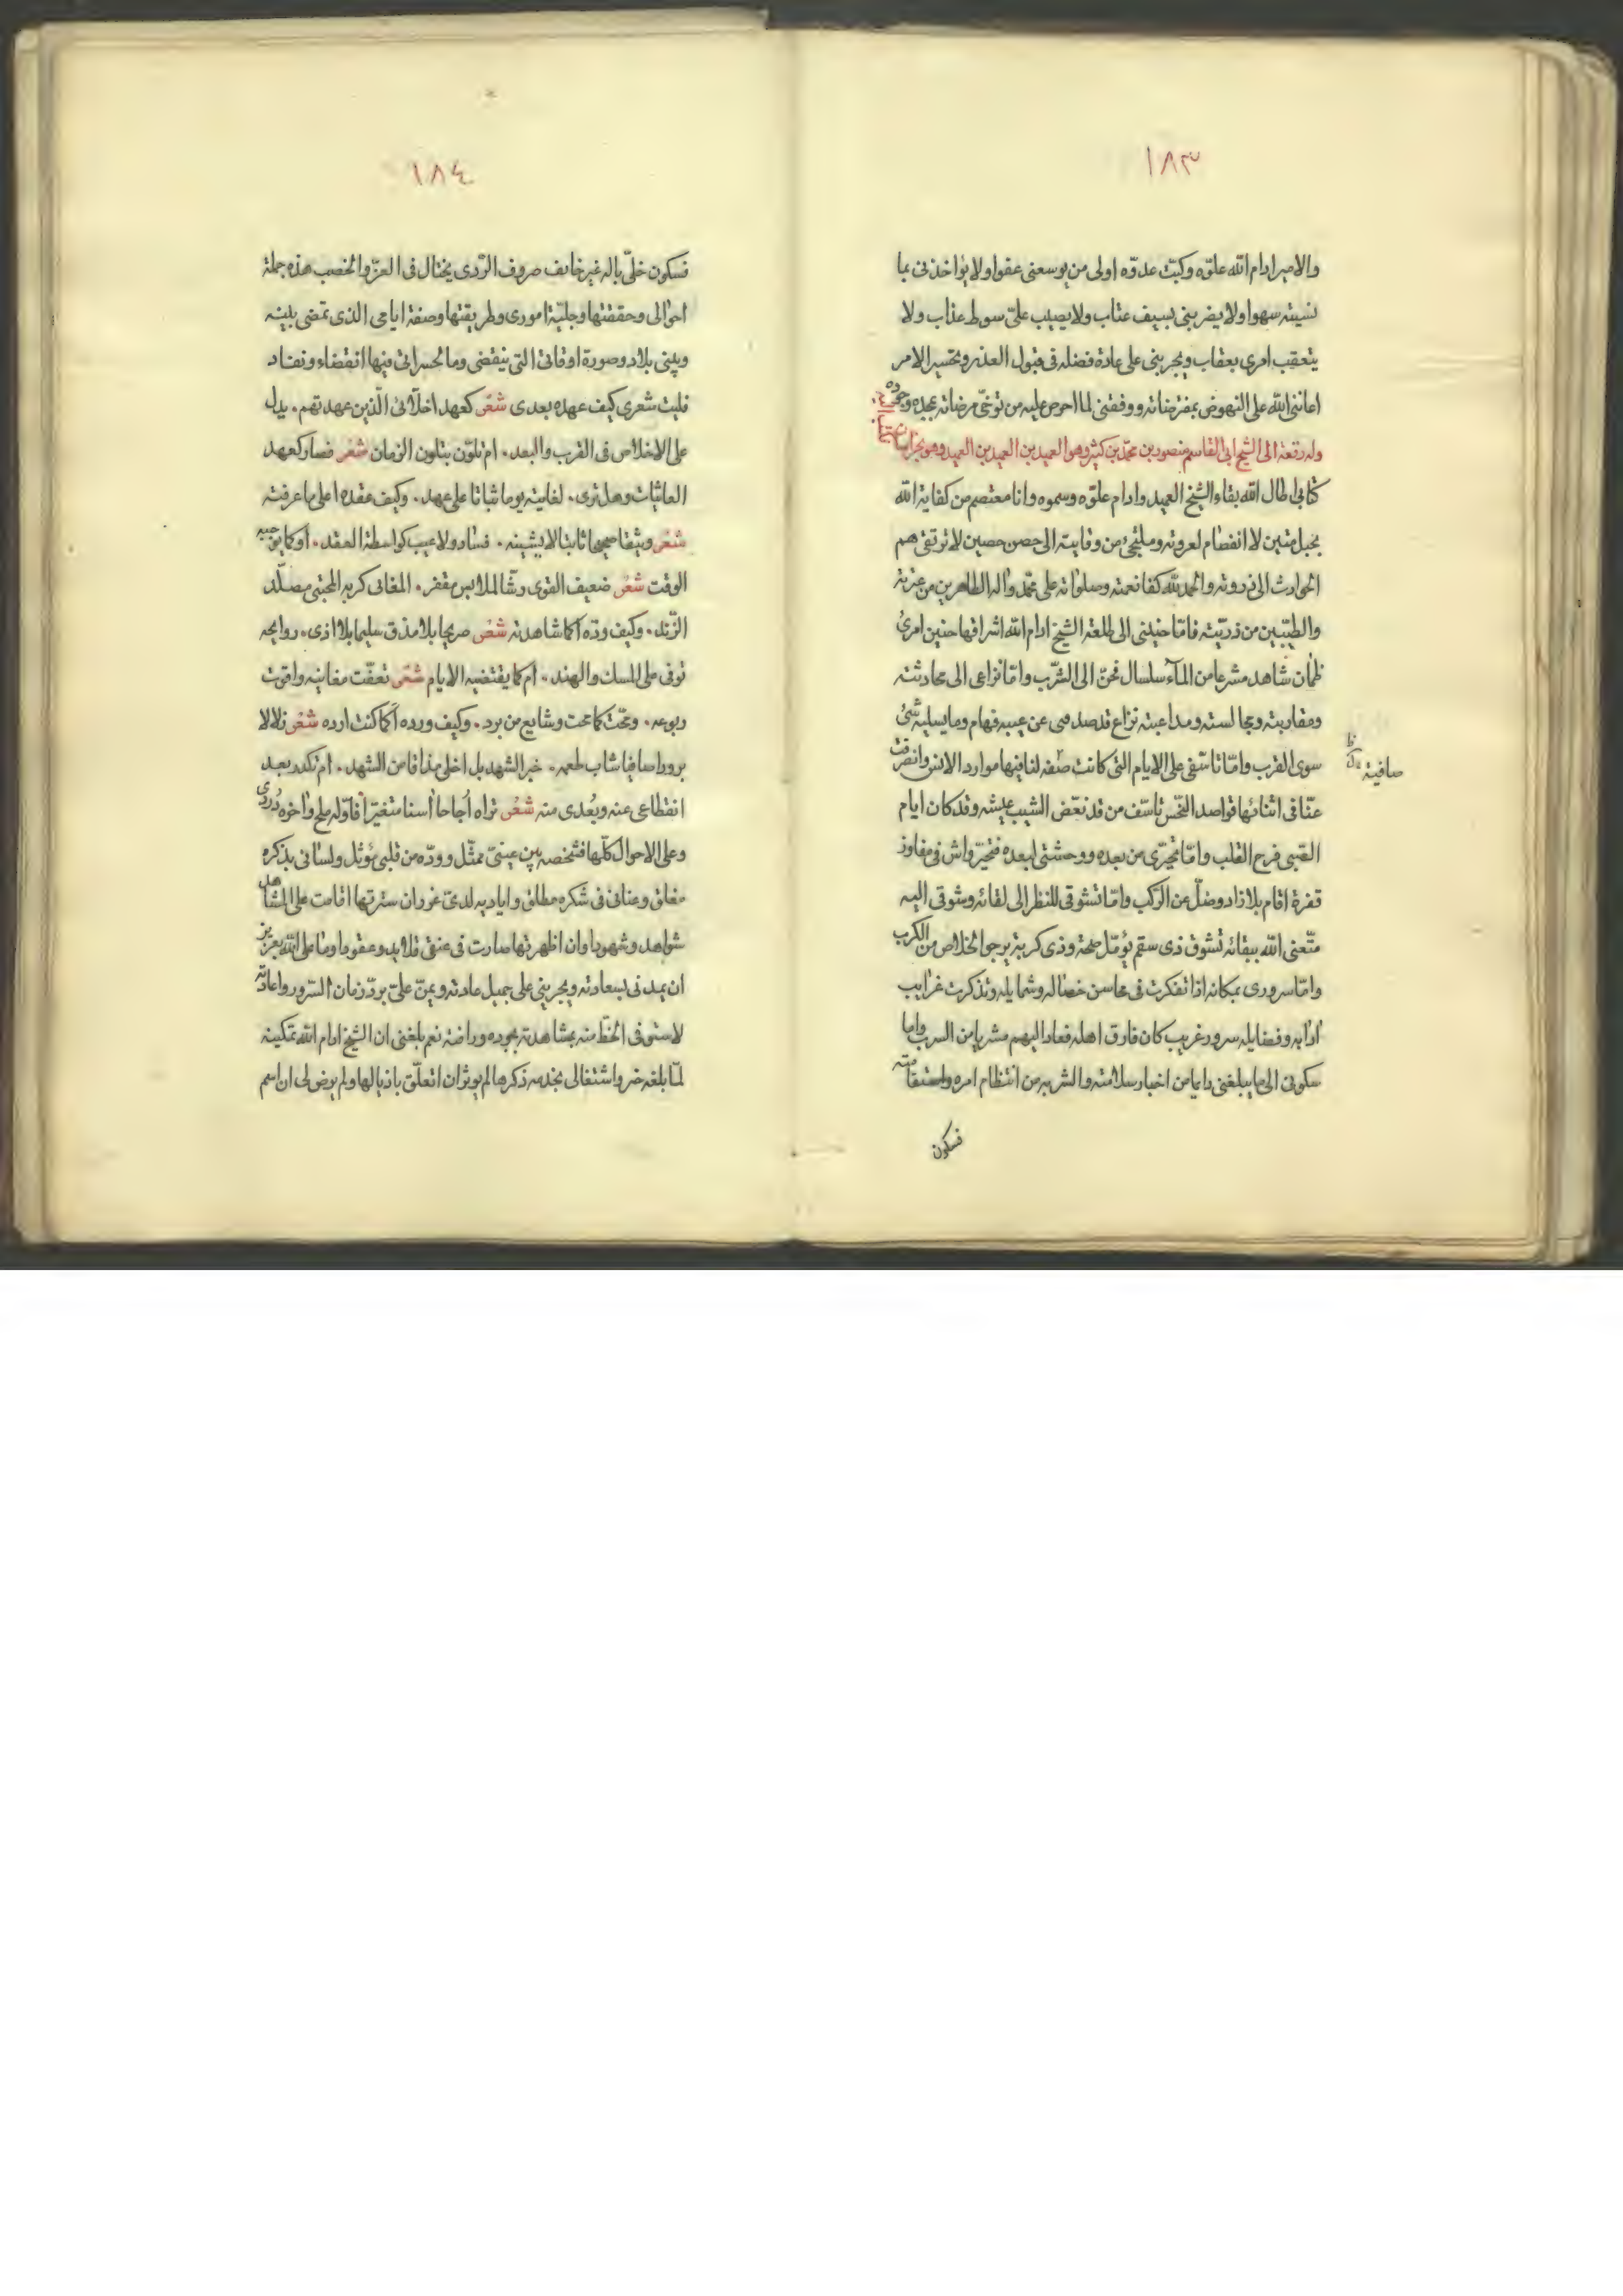 ١٨٣
والامير ادام الله علوّه وكبّت عدوّه اولى من يوسعنى عفوا ولا يؤاخذنى بما
نسيته سهوا ولا يضربنى بسيف عتاب ولا يصيب علىّ سوط عذاب ولا
يتعقب امرى بعقاب ويجربنى على عادة فضله فى قبول العذر وتحسير الامر
اعاننى الله على النهوض بمفترضاته ووفقنى لما احرص عليه من توخّى مرضاته بمجده وجوده
وله رقعة الى الشيخ ابى القاسم منصور بن محمّد بن كثير وهو العميد بن العميد بن العميد وهو بخراسان
كتابى اطال الله بقاء الشيخ العميد وادام علوّه وسموه وانا معتصم من كفاية الله
بحبل متين لا انفصام لعروته وملتجئ من وقايته الى حصن حصين لا ترتقى همم
الحوادث الى ذروته والحمد لله كفا نعمته وصلواته على محمّد واله الطاهرين من عترته
والطيّبين من ذريّته فامّا حنينى الى طلعة الشيخ ادام الله اشراقها حنين امرئ
ظمأن شاهد مشرعا من المآء سلسال فحنّ الى الشّرب وامّا نزاعى الى محادثته
ومقاربته ومجالسته ومداعبته نزاع قد صد صبى عن عيبه فهام وما يسليه شئ
سوى القرب وامّا تاسّفى على الايام التى كانت صفه لنا فيها موارد الانس وانصرفت
صافية
عنّا فى اثنائها قواصد النّحس تاسّف من قد نغّض الشيب عيشه وقد كان ايام
الصّبى فرح القلب وامّا تحيّرى من بعده ووحشتى لبعده فتحيّر واش فى مفاوز
قفرة اقام بلا زاد وضلّ عن الرّكب وامّا تشوقى للنظر الى لقائه وشوقى اليه
متّعنى الله ببقائه تشوق ذى سقم يؤمّل صحة وذى كربة يرجوا الخلاص من الكرب
وامّا سرورى بمكانه اذا تفكرت فى محاسن خصاله وشمايله وتذكرت غرايب
ادابه وفضايله سرور غريب كان فارق اهله فعاد اليهم مشربا من السرب واما
سكونى الى ما يبلغنى دايما من اخبار سلامته والشر به من انتظام امره واستقامته
فسكون
١٨٤
فسكون خلىّ باله غير خايف صروف الرّدى يختال فى العزّ والخصب هذه جملة
احوالى وحقيقتها وجليّة امورى وطريقتها وصفة ايامى الذى تمضى بلينه
وبينى بلاد وصورة اوقاتى التى ينقضى وما لحسراتى فيها انقضاء ونفاد
فليت شعرى كيف عهده بعدى شعر كعهد اخلّائى الّذين عهدتهم. يدل
على الاخلاص فى القرب والبعد. ام تلوّن بتلون الزمان شعر فصار كعهد
الغانيات وهل ترى. لغانية يوما ثباتا على عهد. وكيف عقده اعلى ما عرفته
شعر وثيقا صحيحا ثابتا لا يشينه. فساد ولا عيب كواسطة العقد. ام كما يوجبه
الوقت شعر ضعيف القوى رثّا لملابس مقفر. المغانى كريه المجتنى مصلّد
الزّند. وكيف ودّه اكما شاهدته شعر صريحا بلا مذق سليما بلا اذى. روايحه
توفى على المسك والهند. ام كما يقتضيه الايام شعر تعفّت مغانيه واقوت
ربوعه. ومحّت كما محت وشايع من برد. وكيف ورده أكما كنت ارده شعر زلالا
برودا صافيا شاب طعمه. خبر الشهد بل احلى مذاقا من الشهد. ام تكدر بعد
انقطاعى عنه وبُعدى منه شعر تراه أجاجا أسنا متغيّرا فاوّله ملح واخره دُردى
وعلى الاحوال كلّها فشخصه بين عينىّ ممثّل وودّه من قلبى مؤثل ولسانى بذكره
مغلق وعنانى فى شكره مطلق واياديه لدىّ غرر ان سترتها اقامت علىّ المشاهد
شواهد وشهودا وان اظهرتها صارت فى عنقى قلايد وعقودا وما على الله بعزيز
ان يمدنى بسعادته ويجربنى على جميل عادته ويمنّ علىّ بردّ زمان السّرور واعادته
لاستوفى الحظّ منه بمشاهدته بجوده ورافته نعم بلغنى ان الشيخ ادام الله تمكينه
لمّا بلغه خبر واشتغالى بخدمه ذكرها لم يوثر ان اتعلّق باذيالها ولم يرض لى ان اسم